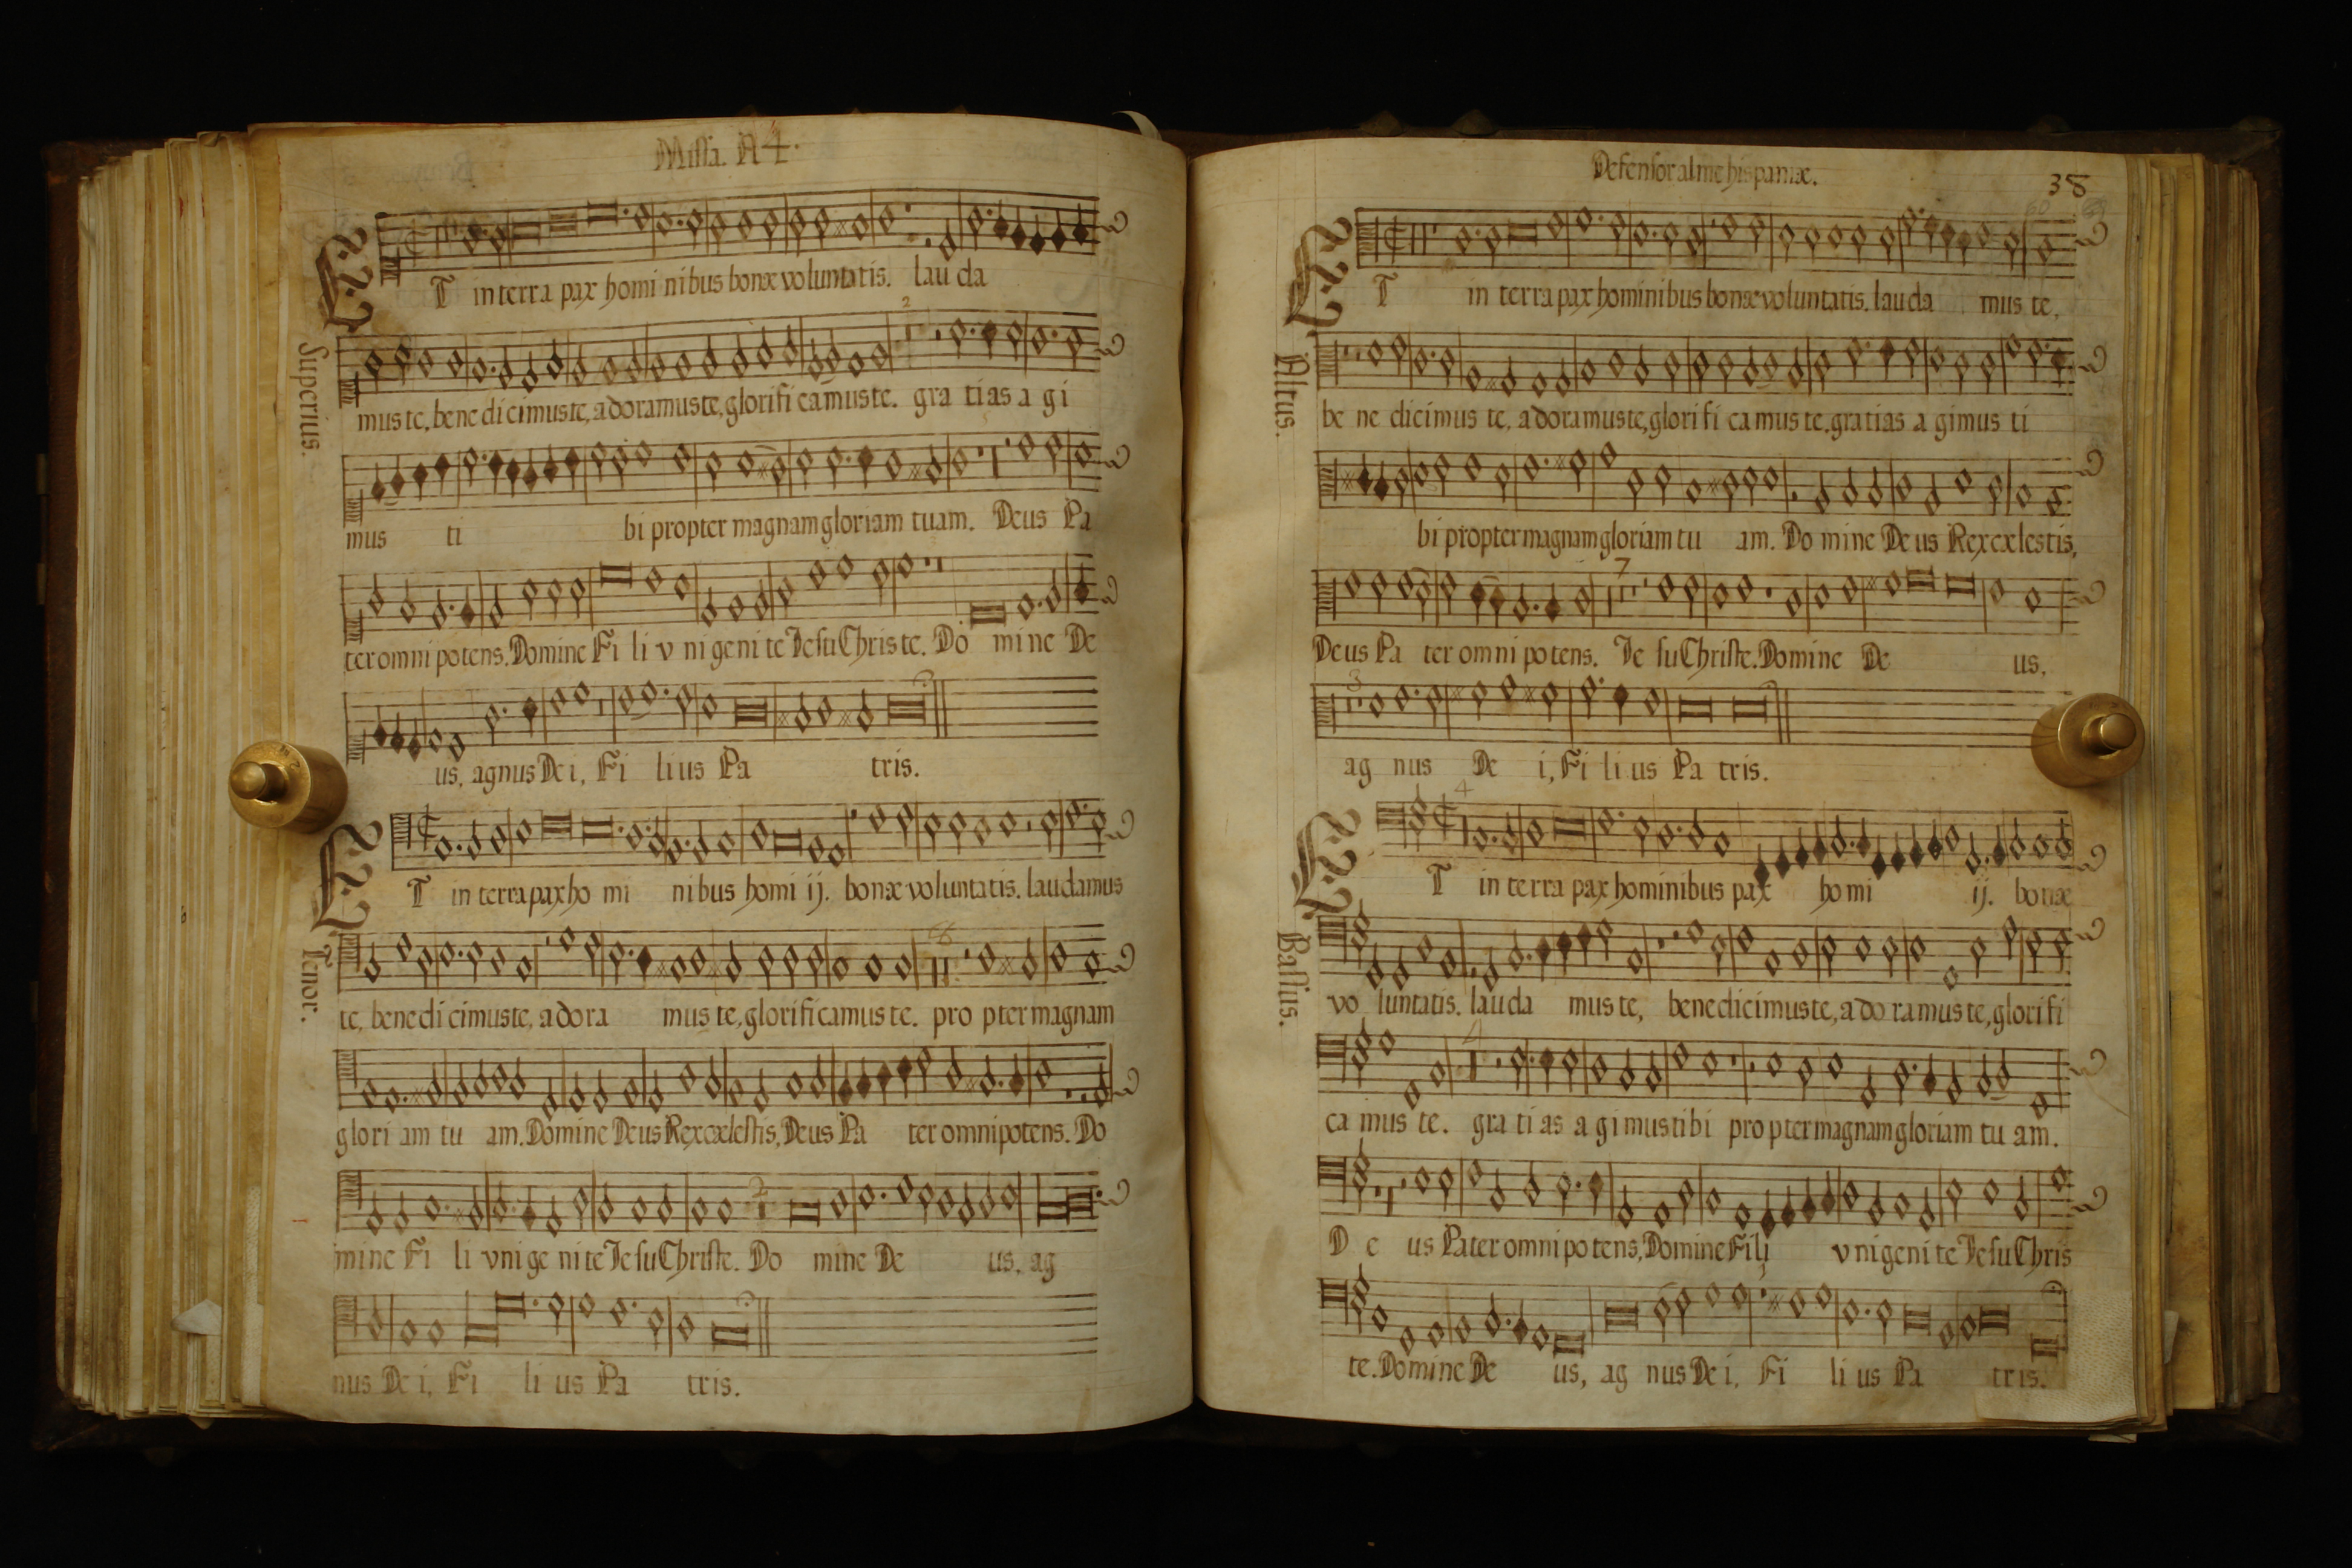 Missa. A 4.
ET in terra pax homi nibus bonæ voluntatis. lau da
Superius.
mus te, bene di cimus te, adoramus te, glorifi camus te. gra tias a gi
mus ti bi propter magnam gloriam tuam. Deus Pa
ter omni potens. Domine Fi li v ni geni te Jesu Chris te. Do mine De
us, agnus De i, Fi lius Pa tris.
ET in terra pax ho mi nibus homi ij. bonæ voluntatis. laudamus
Tenor.
te, benedicimus te, adora mus te, glorificamus te. pro pter magnam
glori am tu am. Domine Deus Rex cælestis, Deus Pa ter omnipotens. Do
mine Fi li vnige nite Jesu Christe. Do mine De us, ag
nus De i, Fi li us Pa tris.
Defensor alme hispaniæ.
38
ET in terra pax hominibus bonæ voluntatis. lauda mus te,
Altus.
be ne dicimus te, adoramus te, glorifi camus te. gratias a gimus ti
bi propter magnam gloriam tu am. Do mine De us Rex cælestis,
7
Deus Pa ter omni potens. Je su Christe. Domine De us,
3
ag nus De i, Fi li us Pa tris.
4
ET in terra pax hominibus pax homi ij. bonæ
Bassus.
vo luntatis. lauda mus te, benedicimus te, ado ramus te, glorifi
4
ca mus te. gra ti as a gimus tibi propter magnam gloriam tu am.
D e us Pater omnipotens, Domine Fili vnigeni te Jesu Chris
te. Domine De us, ag nus De i, Fi li us Pa tris.